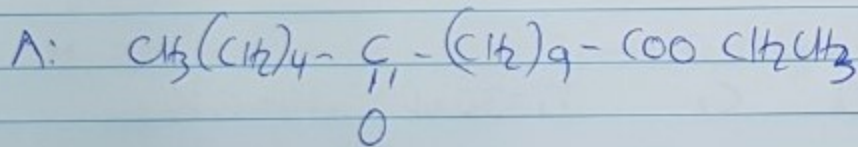 A: CH3(CH2)4 - C - (CH2)9 - COO CH2CH3
||
O